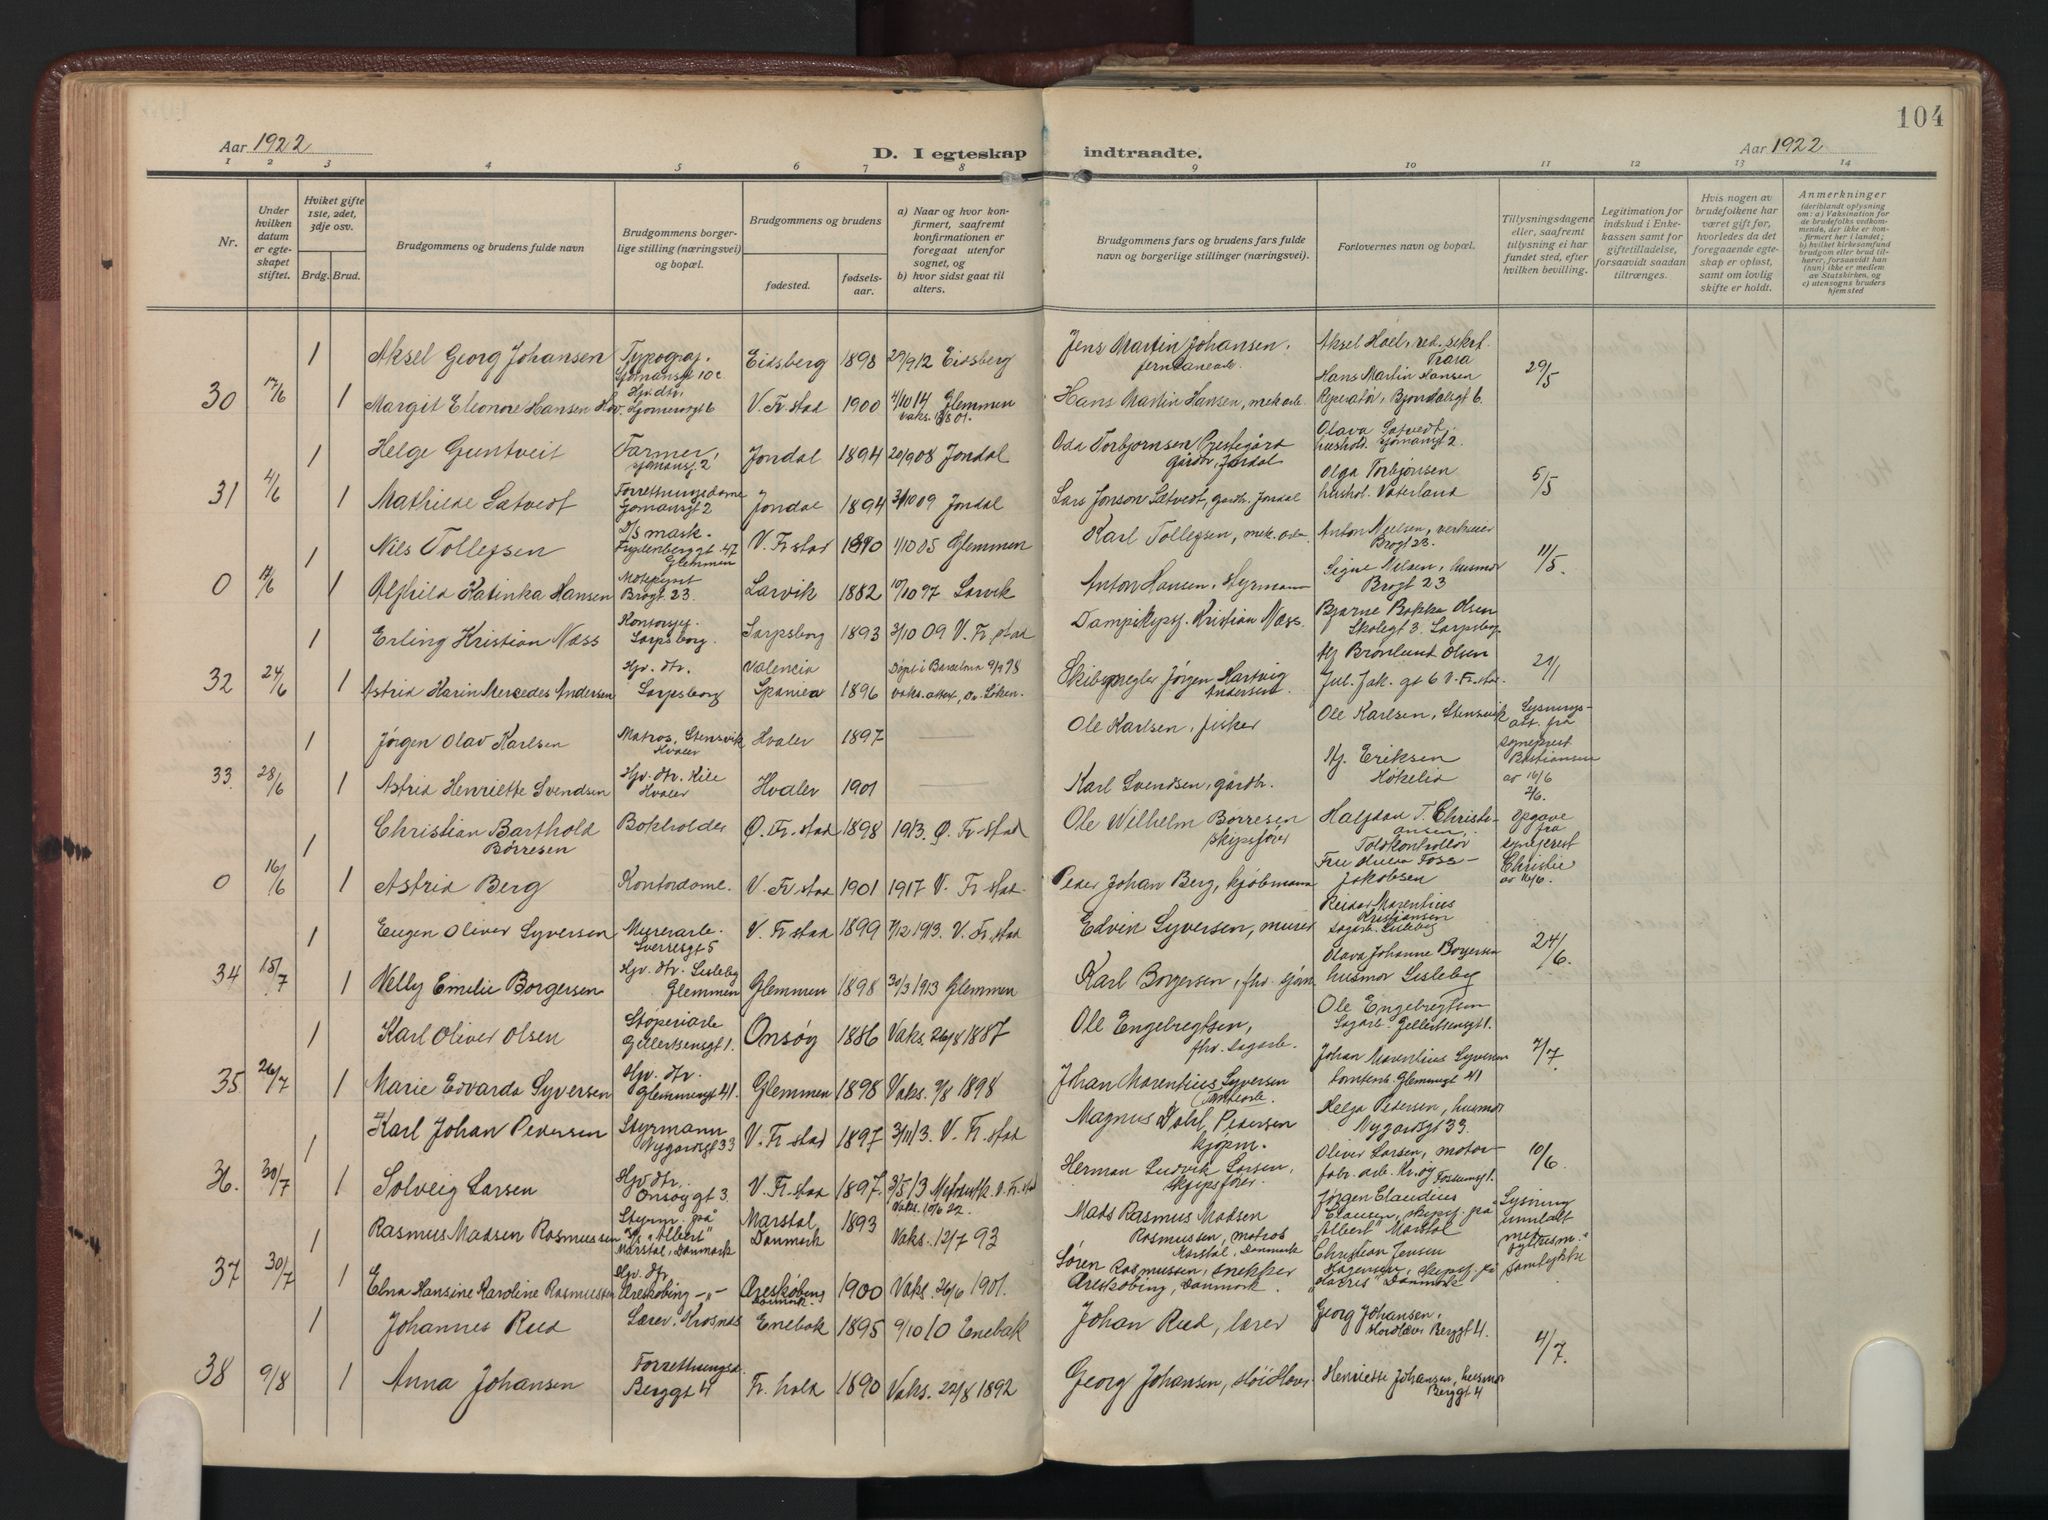 104
Aar 1922
D. I egteskap indtraadte.
Aar 1922
1 2 3 4 5 6 7 8 9 10 11 12 13 14
Nr.
Under hvilken datum er egteskapet stiftet.
Hviket gifte 1ste, 2det, 3dje osv.
Brdg. Brud.
Brudgommens og brudens fulde navn
Brudgommens borgerlige stilling (næringsvei) og bopæl.
Brudgommens og brudens
fødested.
fødselsaar.
a) Naar og hvor konfirmert, saafremt konfirmationen er foregaat utenfor sognet, og
b) hvor sidst gaat til alters.
Brudgommens fars og brudens fars fulde navn og borgerlige stillinger (næringsvei).
Forlovernes navn og bopæl.
Tillysningsdagene eller, saafremt tillysning ei har fundet sted, efter hvilken bevilling.
Legitimation for indskud i Enkekassen samt for giftetilladelse, forsaavidt saadan tiltrænges.
Hvis nogen av brudefolkene har været gift før, hvorledes da det foregaaende egteskap er opløst, samt om lovlig skifte er holdt.
Anmerkninger
(deriblandt oplysning om: a) Vaksination for de brudefolks vedkommende, der ikke er konfirmert her i landet; b) hvilket kirkesamfund brudgom eller brud tilhører, forsaavidt han (hun) ikke er medlem av Statskirken, og c) utensogns bruders hjemsted
1 Aksel Georg Johansen Typograf. Sjømansgt 10c Eidsberg 1898 29/9 12 Eidsberg Jens Martin Johansen, jernbanearb. Aksel Hoel, red. sekr. Trara
30 17/6 1 Margit Eleonore Hansen Hjv. dtr. V. Fr.stad 1900 4/10 14 Glemmen Hans Martin Hansen, mek.arb. Hans Martin Hansen Reperatør, Bjøndalsgt 6. 29/5
1 Helge Guntveit Farmer, Sjømansgt 2 Jondal 1894 20/9 08 Jondal Oda Torbjørnsen Prestegård gårdbr, Jondal Olava Sætvedt, hushold. Sjømansgt 2.
31 4/6 1 Mathilde Sætvedt Forretningsdame Sjømansgt 2 Jondal 1894 3/10 09 Jondal Lars Jonson Sætvedt, gårdbr. Jondal Olga Torbjønsen hushol. Vaterland 5/5
1 Nils Tollefsen D/S mask. Frydenberggt 47 Glemmen V. Fr.stad 1890 1/10 05 Glemmen Karl Tollefsen, mek. arb. Anton Nielsen, Brogt 23.
0 11/6 1 Alfhild Katinka Hansen Brogt 23. Larvik 1882 10/10 97 Larvik Anton Hansen, styrmann Signe Nielsen, husmor Brogt 23 11/5.
1 Erling Kristian Næss Kontorsjef. Sarpsborg. Sarpsborg 1893 3/10 09 V. Fr.stad Dampskipsf. Kristian Næss. Bjarne Bakke Olsen Skolegt 3. Sarpsbog.
32 24/6 1 Astrid Karin Mercedes Andersen Hjv. dtr. Sarpsborg Valencia Spania 1896 Døpt i Barcelona 9/4 98 Vaks. attest, Dr. Løken. Skibsmegler Jørgen Hartvig Andersen. Hj Brønlund Olsen Jul. Jak. gt 6 V. Fr.stad 21/1
1 Jørgen Olav Karlsen Matros, Stensvik Hvaler Hvaler 1897 — Ole Karlsen, fisker Ole Karlsen, Stensvik Lysningsatt. fra
33. 28/6 1 Astrid Henriette Svendsen Hjv. dtr. Kile Hvaler Hvaler 1901 — Karl Svendsen, gårdbr. Hj. Eriksen Høkelia sogneprest Bastiansen av 16/6
1 Christian Barthold Børresen Bokholder Ø. Fr.stad 1898 1913. Ø. Fr.stad Ole Wilhelm Børresen skipsfører Halfdan T. Christiansen, Toldkontrollør 2/6. Opgave fra
0 16/6 1 Astrid Berg Kontordame. V. Fr.stad 1901 1917 V. Fr.stad. Peder Johan Berg, kjøbmann Fru Foss-Jakobsen sogneprest Christie av 16/6.
1 Eugen Oliver Syversen Murerarb. Sverresgt 5 V. Fr.stad 1899 7/12 1913. V. Fr.stad Edvin Syversen, murer Reidar Marentius Kristiansen Sagarb. Lisleby
34 15/7 1 Nelly Emilie Borgersen Hjv. dtr. Lisleby Glemmen Glemmen 1898 30/3 1913 Glemmen Karl Borgersen, fhv. sjøm Olava Johanne Borgersen husmor Lisleby 24/6.
1 Karl Oliver Olsen Støperiarb Gellertsensgt 1. Onsøy 1886 Vaks. 26/8 1887 Ole Engebregtsen, fhv. sagarb. Ole Engebregtsen Sagarb. Gellertsensgt 1.
35. 26/7 1 Marie Edvarda Syversen Hjv. dtr. Glemmengt 41. Glemmen 1898 Vaks. 9/8 1898 Johan Marentius Syversen tomtearb. Johan Marentius Syversen tomtearb. Glemmengt 41 7/7.
1 Karl Johan Pedersen Styrmann Nygårdsgt 33 V. Fr.stad 1897 3/11 13. V. Fr.stad Magnus Dahl Pedersen kjøpm. Helga Pedersen, husmor Nygårdsgt 33.
36. 30/7 1 Solveig Larsen Hjv dtr. Onsøygt 3 V. Fr.stad 1897. 2/5 13 Metodistk. V. Fr.stad Vaks. 10/6 22. Herman Ludvik Larsen, skipsfører. Oliver Larsen, motorfabr. arb. Kr.øy Fossumsgt 1. 10/6.
1 Rasmus Madsen Rasmussen Styrm. på "Albert" Marstal, Danmark Marstal, Danmark 1893 Vaks. 12/7 93 Mads Rasmus Madsen Rasmussen, matros Marstal, Danmark Jørgen Claudius Clausen, skipsf. på "Albert" Marstal Lysning unnlatt
37 30/7 1 Edna Hansine Karoline Rasmussen Hjv. dtr Æreskøbing -"- Æreskøbing Danmark. 1900 Vaks. 26/6 1901. Søren Rasmussen, snekker Æreskøbing, Danmark. Christian Jensen skipsf. på Danmark med samtykke
1 Johannes Rud Lærer. Krosnes Enebak 1895 9/10 10 Enebak Johan Rud, lærer Georg Johansen, Berggt 4.
38 9/8 1 Anna Johansen Forretningsd. Berggt 4 Fr.hald 1890 Vaks. 22/8 1892 Georg Johansen, Henriette Johansen, husmor Berggt 4 4/7.